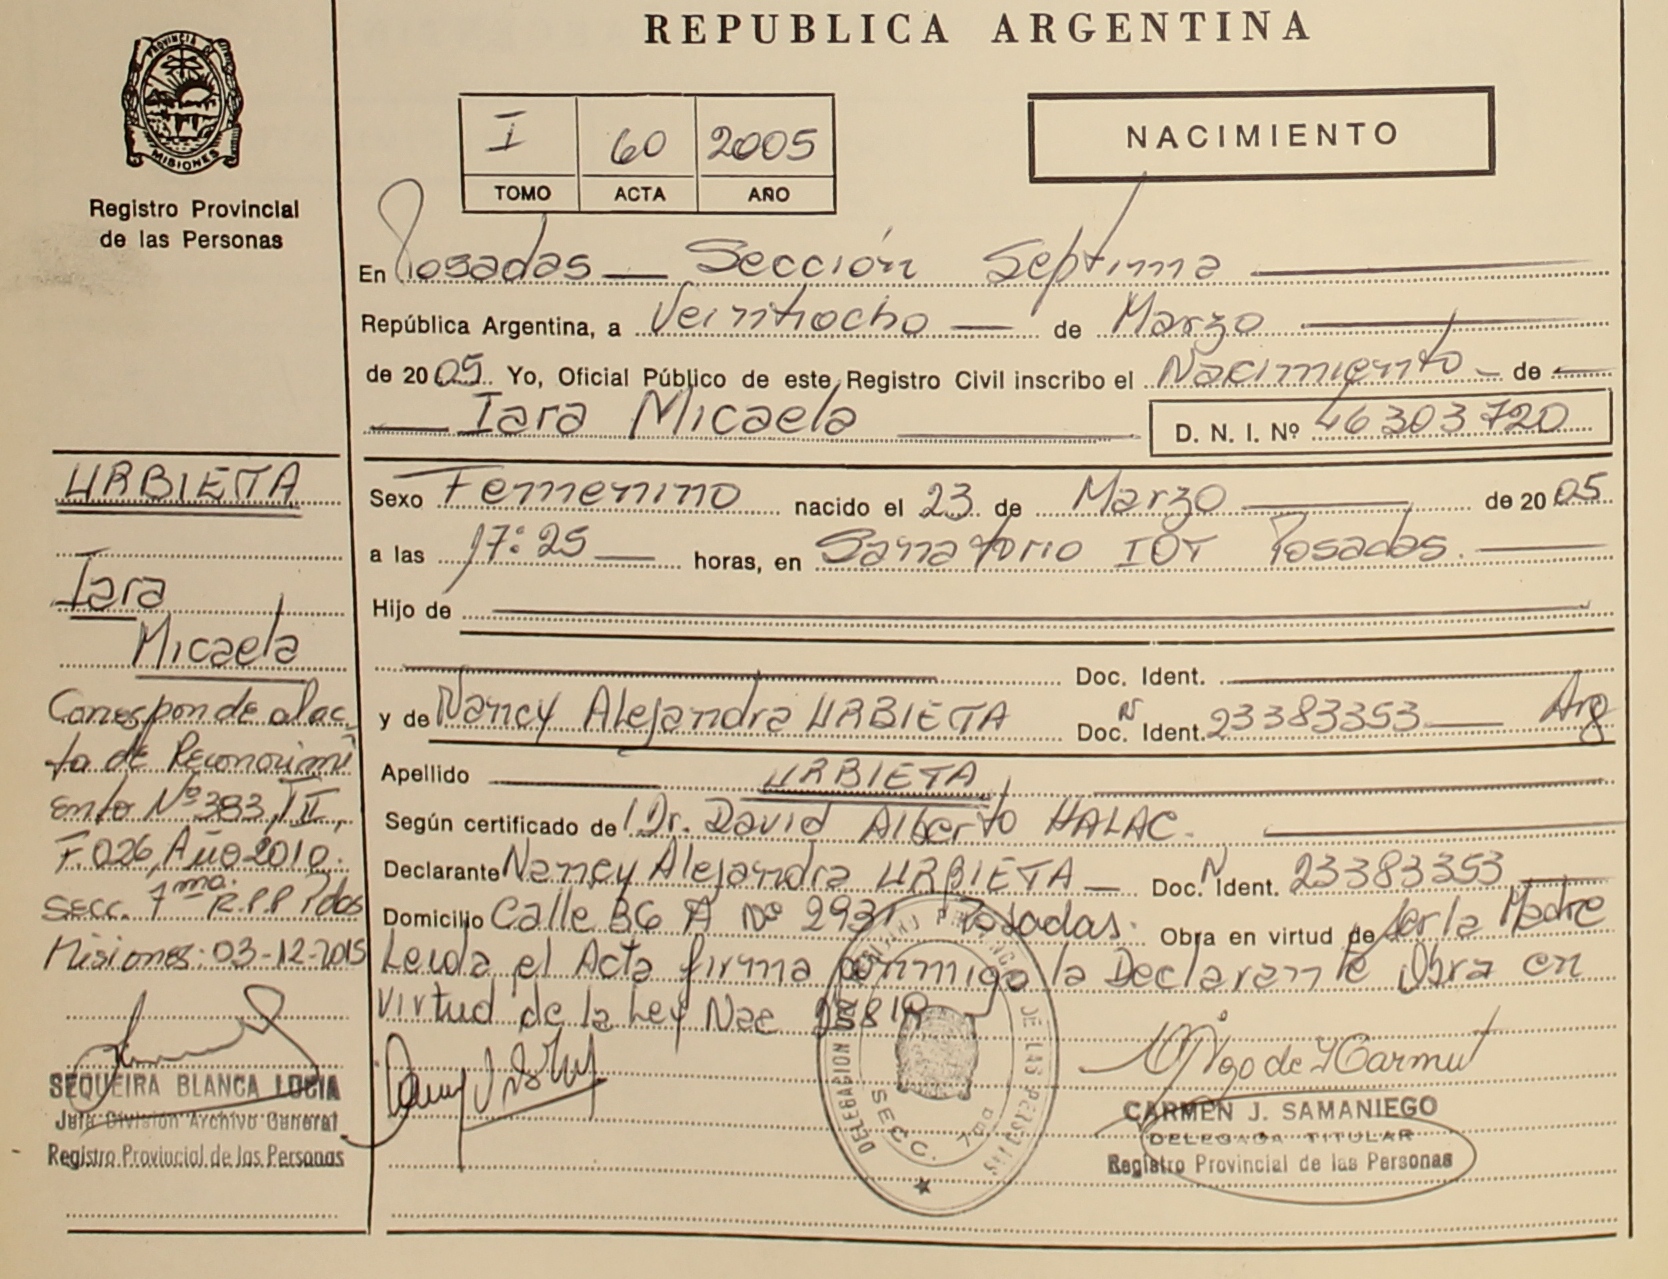 REPUBLICA ARGENTINA
PROVINCIA DE
MISIONES
Registro Provincial
de las Personas
I 60 2005
TOMO ACTA AÑO
NACIMIENTO
En Posadas — Sección Septima
República Argentina, a Veintiocho — de Marzo
de 2005. Yo, Oficial Público de este Registro Civil inscribo el Nacimiento — de —
— Iara Micaela — D. N. I. Nº 46303720
Sexo Femenino nacido el 23 de Marzo — de 2005
a las 17:25 — horas, en Sanatorio IOT Posadas. —
Hijo de
Doc. Ident.
y de Nancy Alejandra URBIETA Doc. N Ident. 23383353 — Arg
Apellido — URBIETA
Según certificado de Dr. David Alberto HALAC. —
Declarante Nancy Alejandra URBIETA — Doc. N Ident. 23383353 —
Domicilio Calle 36 A Nº 2931 Posadas. Obra en virtud de ser la Madre
Leida el Acta firma conmigo la Declarante Obra en
virtud de la Ley Nac
URBIETA
Iara
Micaela
Corresponde al ac
ta de Reconocimi
ento Nº 383, T II,
F. 026, Año 2010.
secc. 7ma. R.P.P Pdas
Misiones: 03-12-2015
SEQUEIRA BLANCA LUCIA
Jefe División Archivo General
Registro Provincial de las Personas
DELEGACION SECC. 7a.
DE LAS PERSONAS
CARMEN J. SAMANIEGO
DELEGADA TITULAR
Registro Provincial de las Personas